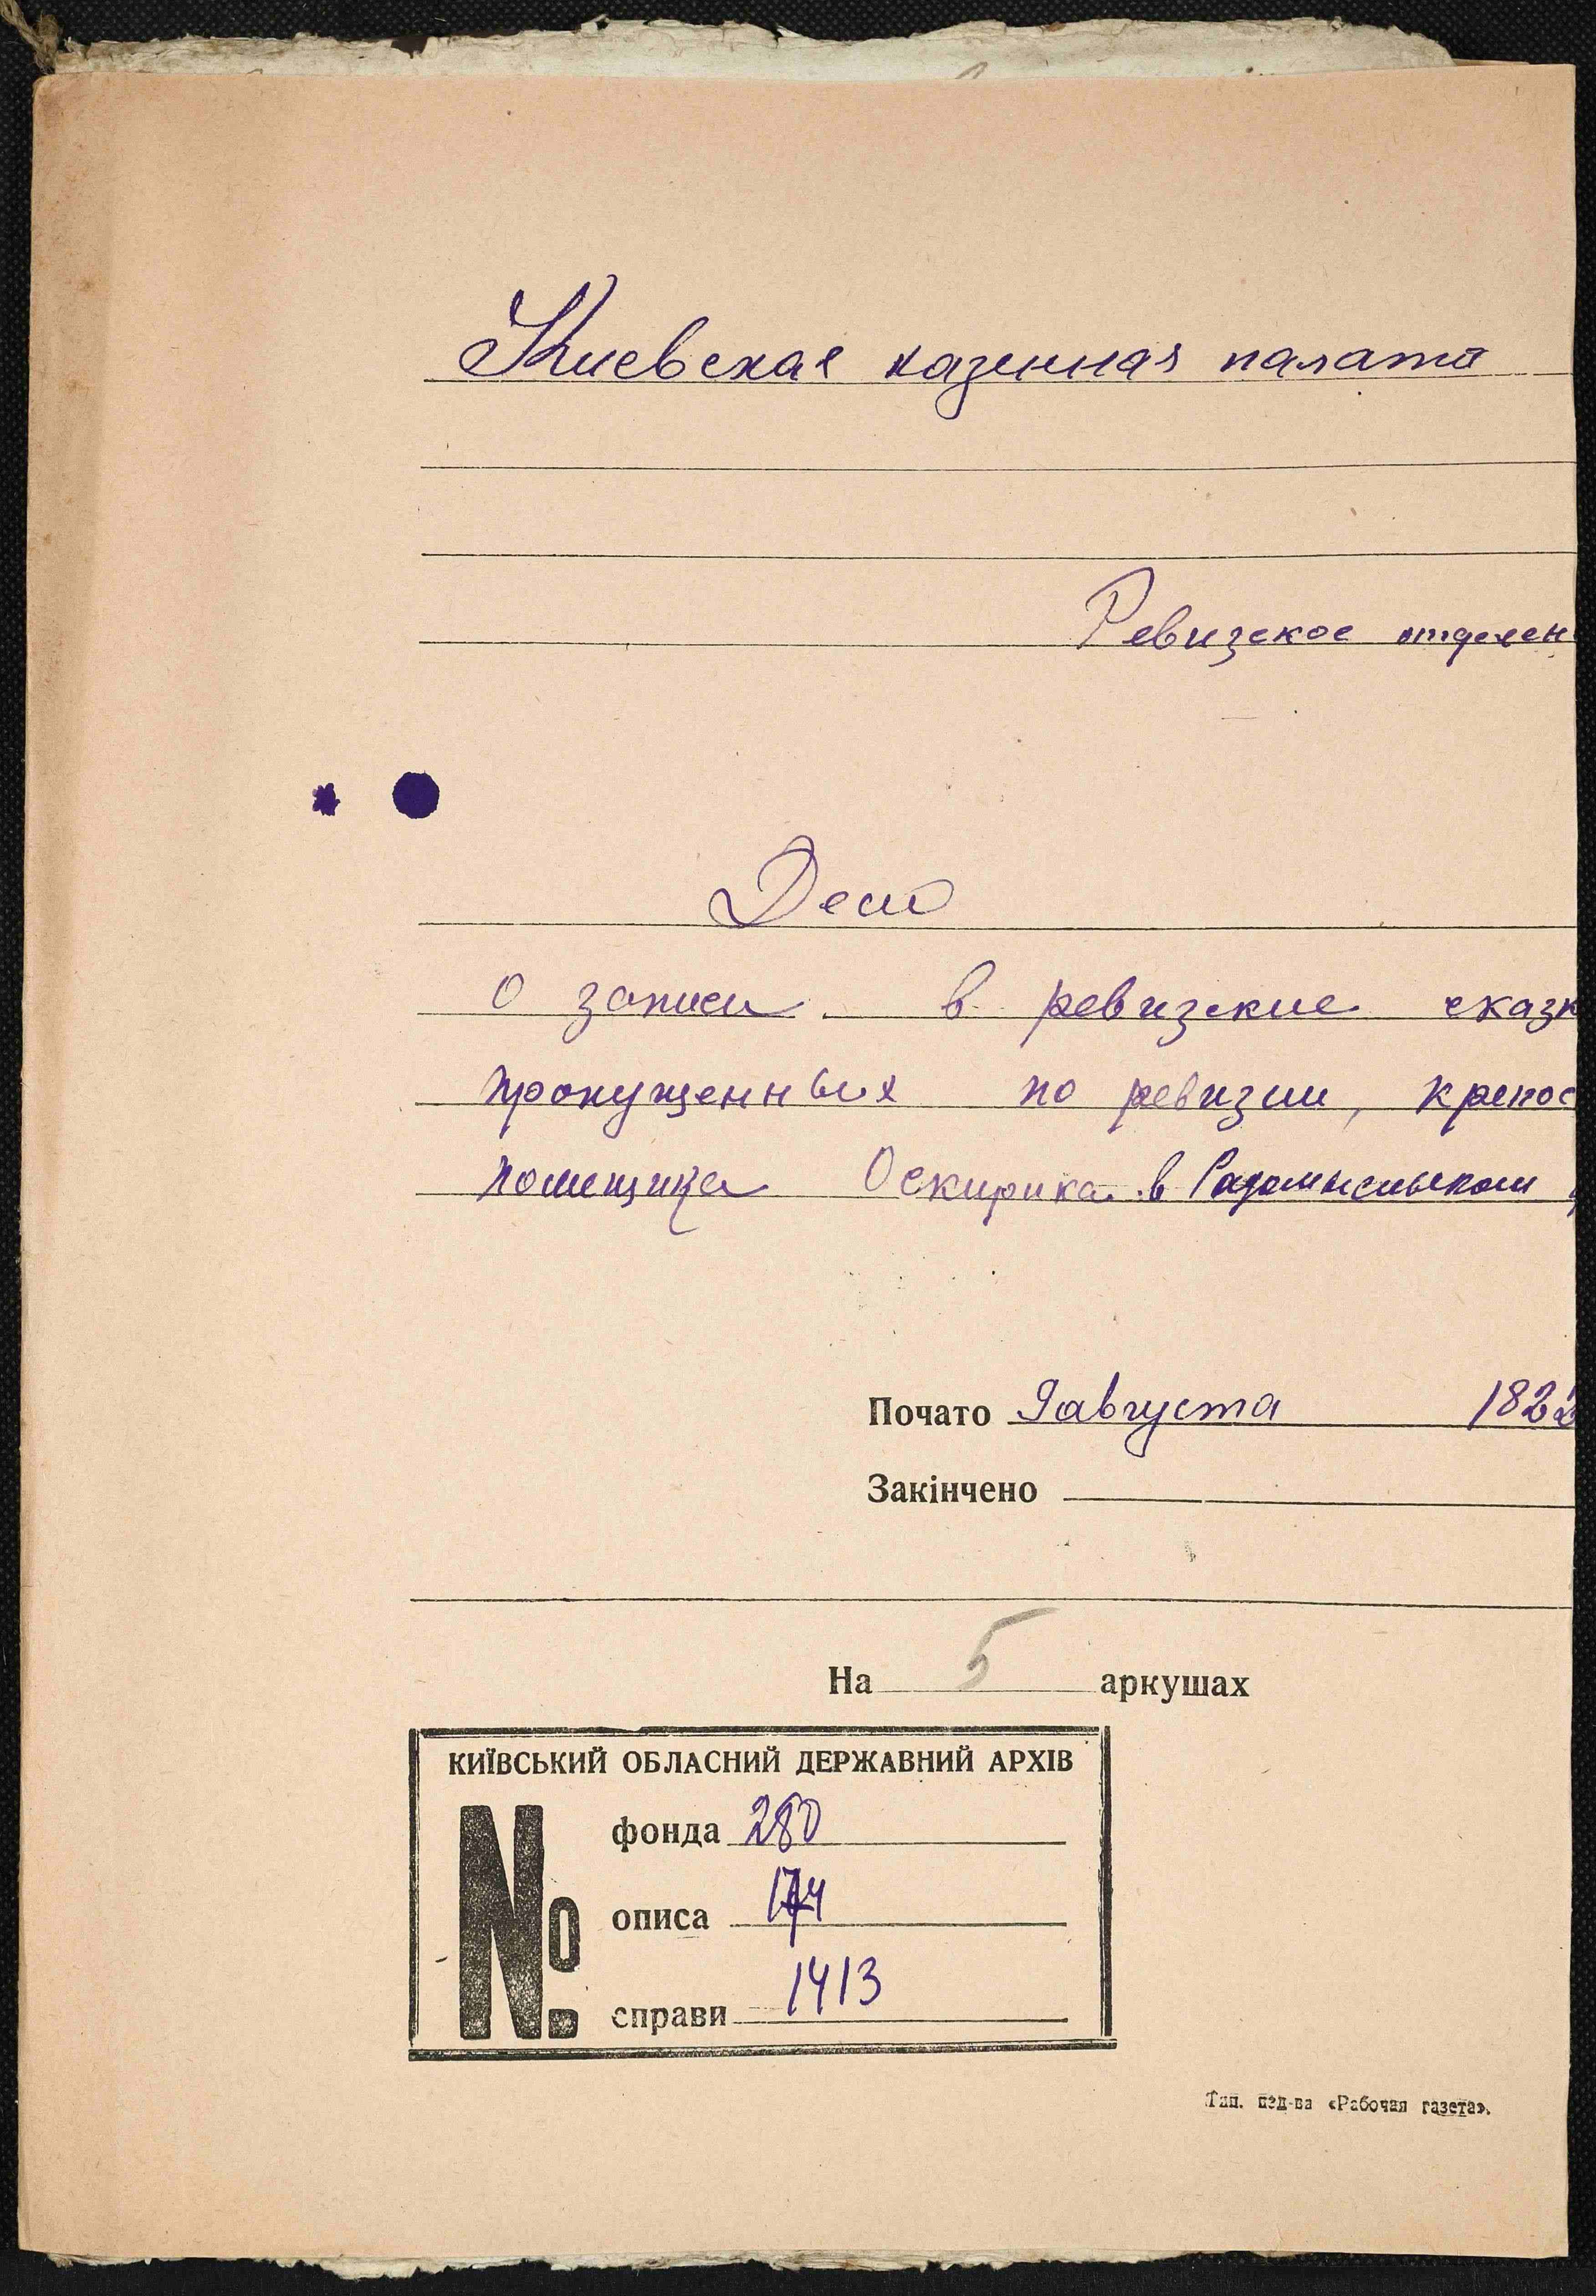 Киевская казенная палата
Ревизское отделен
Дело
о записи в ревизские сказк
пропущенных по ревизии, крепос
помещика Оскирика в Радомысльском
Почато 9 августа 182
Закінчено
На 5 аркушах
КИЇВСЬКИЙ ОБЛАСНИЙ ДЕРЖАВНИЙ АРХІВ
№
фонда 280
описа 174
справи 1413
Тип. изд-ва «Рабочая газета».